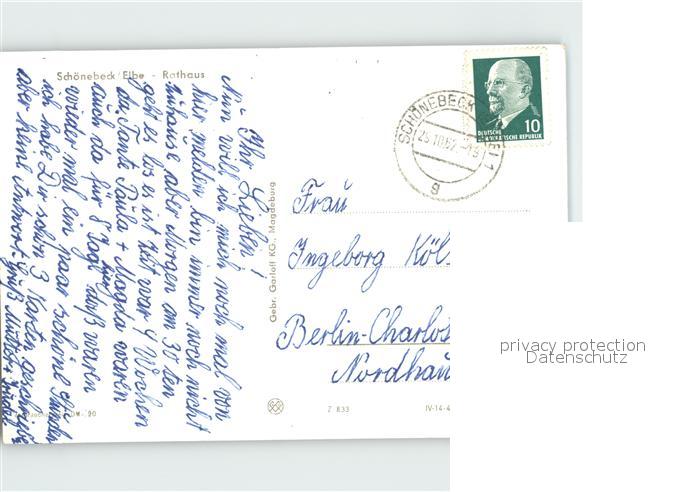 Schönebeck/Elbe - Rathaus
Ihr Lieben!
Nun will ich mich noch mal von
hier melden bin immer noch nicht
zuhause aber Morgen am 30 ten
geht es los es ist hat war 4 Wochen
da, Tante Paula + Magda waren
auch da für 8 Tage, daß waren
wieder mal ein paar schöne
ich habe Dir schon 3 Karten geschickt
aber keine Antwort. Gruß Mutter
Gebr. Garloff KG., Magdeburg
SCHÖNEBECK
25.10.62-13
g
DEUTSCHE
DEMOKRATISCHE REPUBLIK
10
Frau
Ingeborg Köl
Berlin-Charlo
Nordhau
Z 833
IV-14-4
privacy protection
Datenschutz